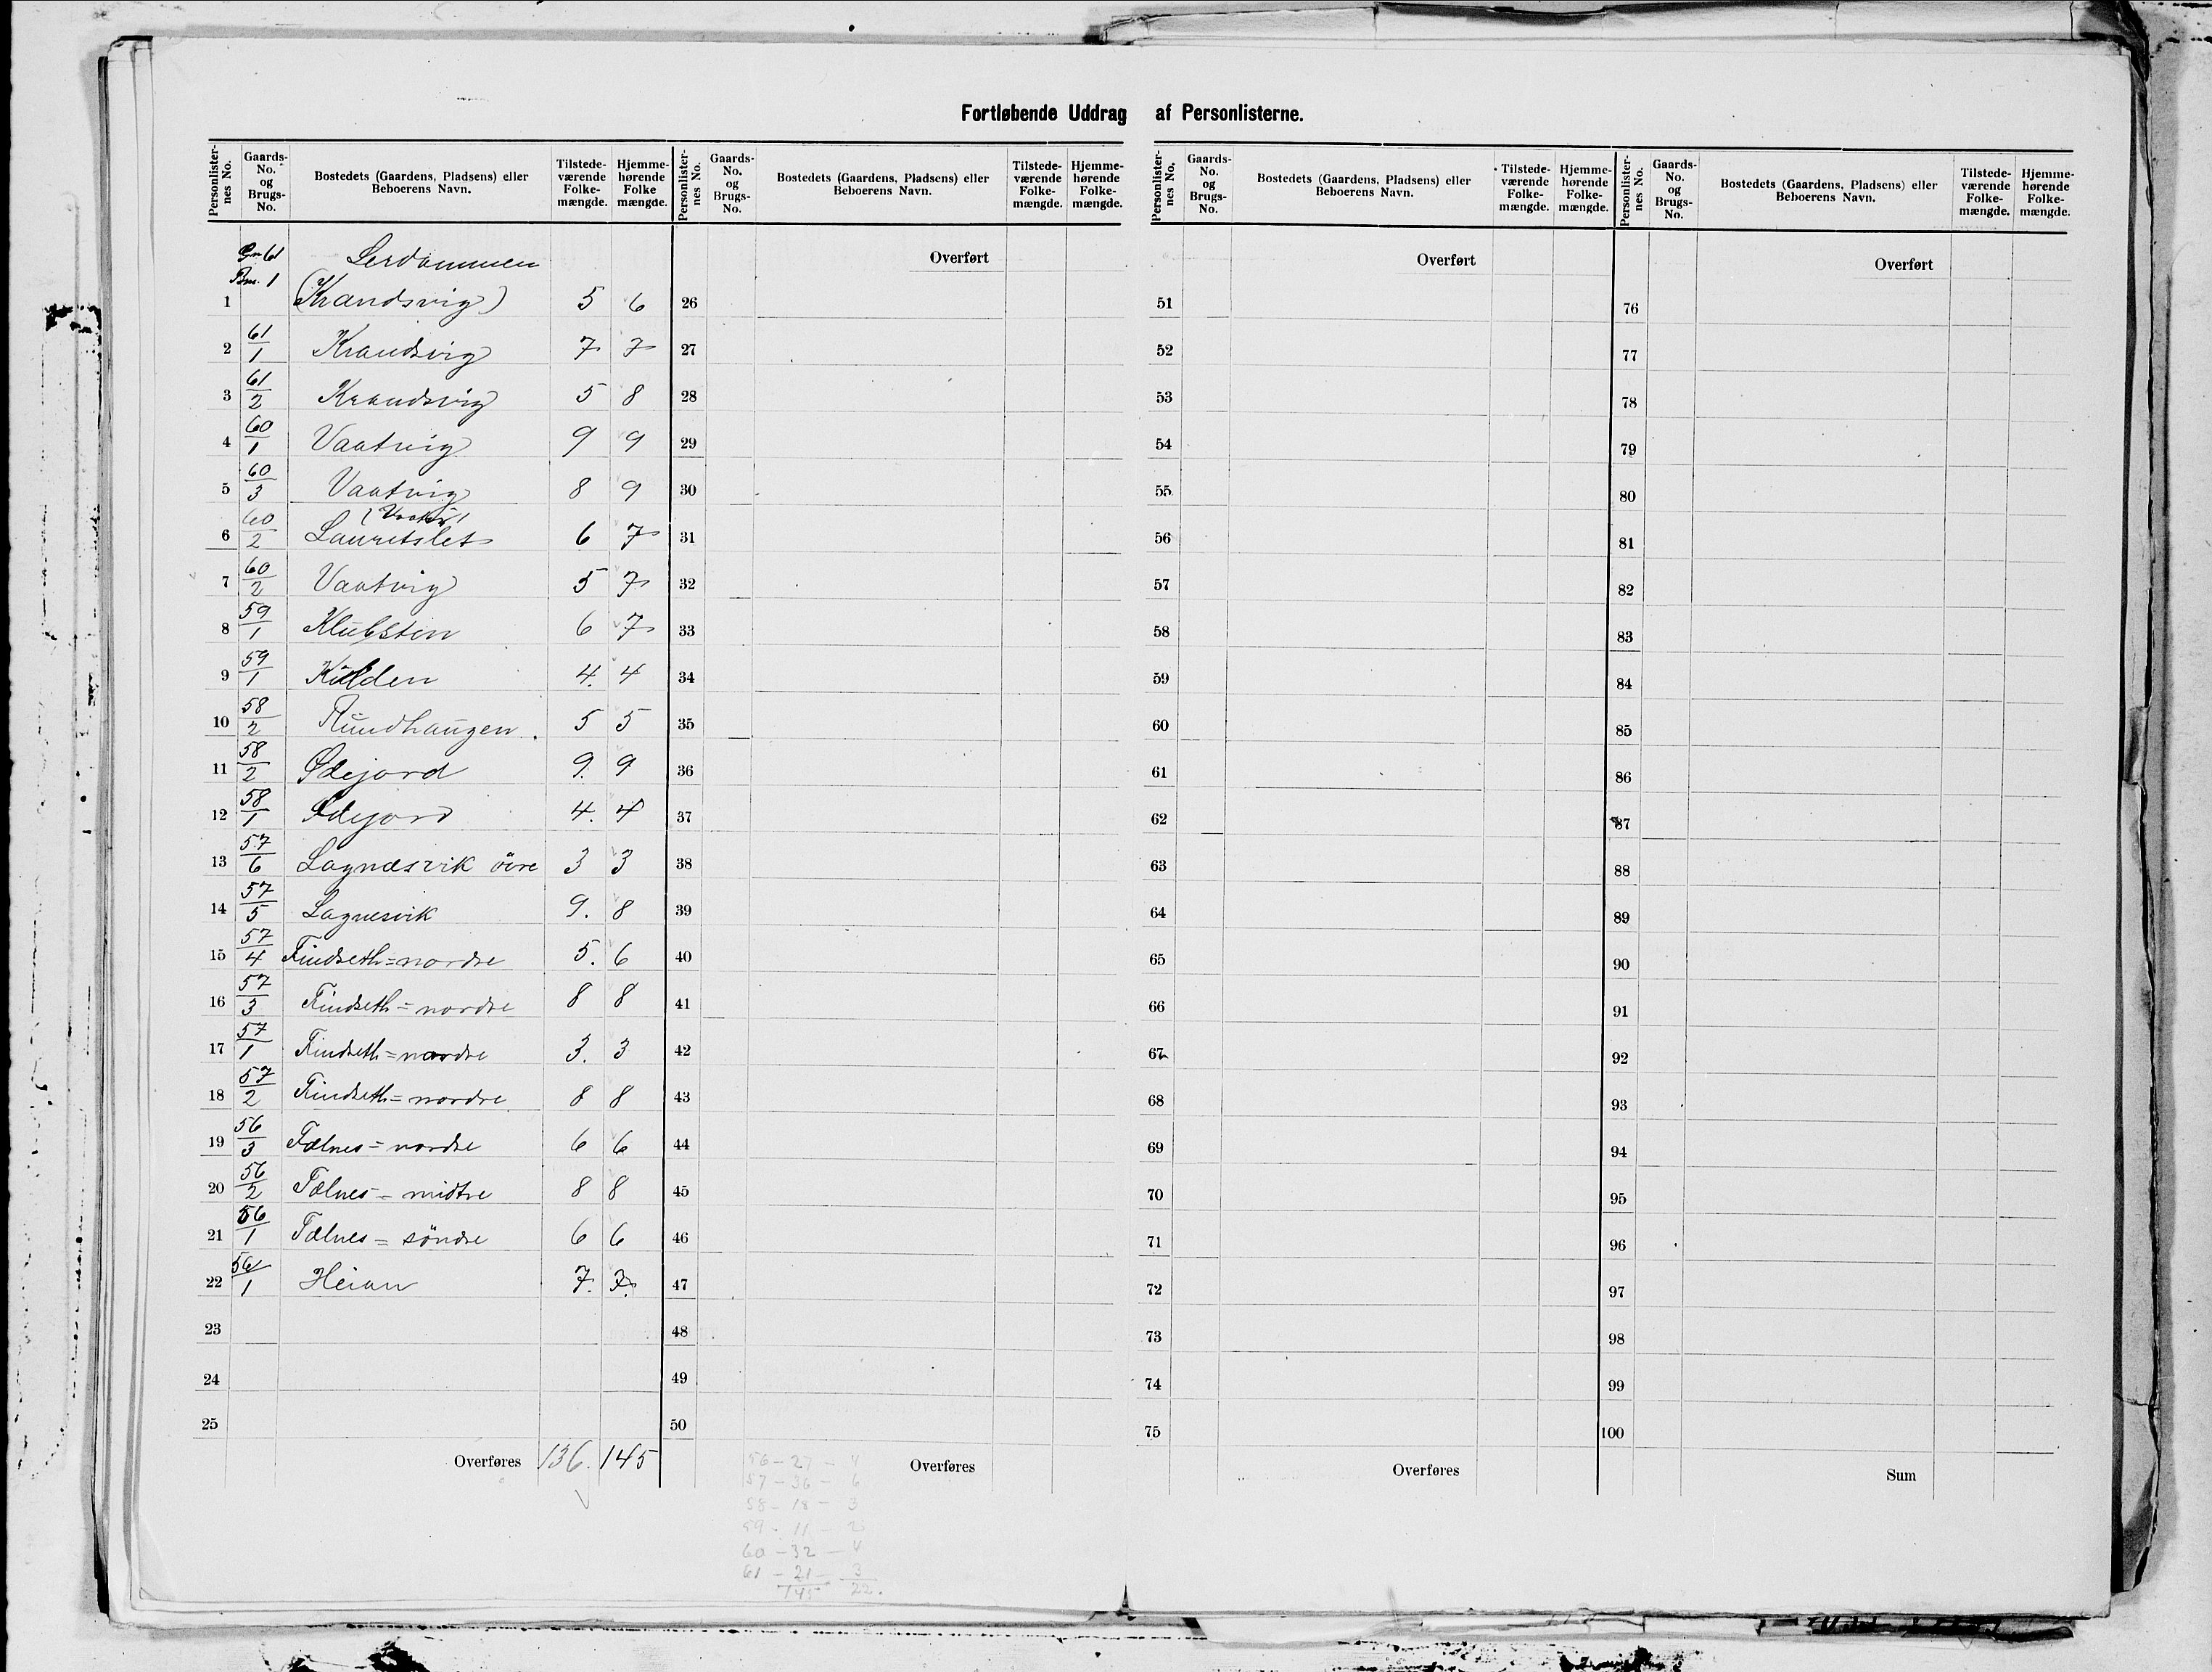 Fortløbende Uddrag af Personlisterne.
Personlister-nes No. Gaards-No. og Brugs-No. Bostedets (Gaardens, Pladsens) eller Beboerens Navn. Tilstede-værende Folke-mængde. Hjemme-hørende Folke mængde.
Personlister-nes No. Gaards-No. og Brugs-No. Bostedets (Gaardens, Pladsens) eller Beboerens Navn. Tilstede-værende Folke-mængde. Hjemme-hørende Folke-mængde.
Personlister-nes No. Gaards-No. og Brugs-No. Bostedets (Gaardens, Pladsens) eller Beboerens Navn. Tilstede-værende Folke-mængde. Hjemme-hørende Folke-mængde.
Personlister-nes No. Gaards-No. og Brugs-No. Bostedets (Gaardens, Pladsens) eller Beboerens Navn. Tilstede-værende Folke-mængde. Hjemme-hørende Folke-mængde.
Gn 61 Lerdammen
Bn. 1
1 (Krandsvig) 5 6
2 61/1 Krandsvig 7 7
3 61/2 Krandsvig 5 8
4 60/1 Vaatvig 9 9
5 60/3 Vaatvig 8 9
(Vaatvig)
6 60/2 Lauritslet 6 7
7 60/2 Vaatvig 5 7
8 59/1 Klubsten 6 7
9 59/1 Kilden 4. 4
10 58/2 Rundhaugen. 5 5
11 58/2 Ødejord 9. 9
12 58/1 Ødejord 4. 4
13 57/6 Lagnæsvik övre 3 3
14 57/5 Lagnesvik 9. 8
15 57/4 Findseth=nordre 5. 6
16 57/3 Findseth=nordre 8 8
17 57/1 Findseth=nordre 3. 3
18 57/2 Findseth=nordre 8 8
19 56/3 Fælnes=nordre 6 6
20 56/2 Fælnes=midtre 8 8
21 56/1 Fælnes=söndre 6 6
22 56/1 Heian 7. 7.
23
24
25
Overføres 136. 145
Overført
26
27
28
29
30
31
32
33
34
35
36
37
38
39
40
41
42
43
44
45
46
47
48
49
50
Overføres
56 – 27 – 4
57 – 36 – 6
58 – 18 – 3
59 – 11 – 2
60 – 32 – 4
61 – 21 – 3
145 22.
Overført
51
52
53
54
55
56
57
58
59
60
61
62
63
64
65
66
67
68
69
70
71
72
73
74
75
Overføres
Overført
76
77
78
79
80
81
82
83
84
85
86
87
88
89
90
91
92
93
94
95
96
97
98
99
100
Sum